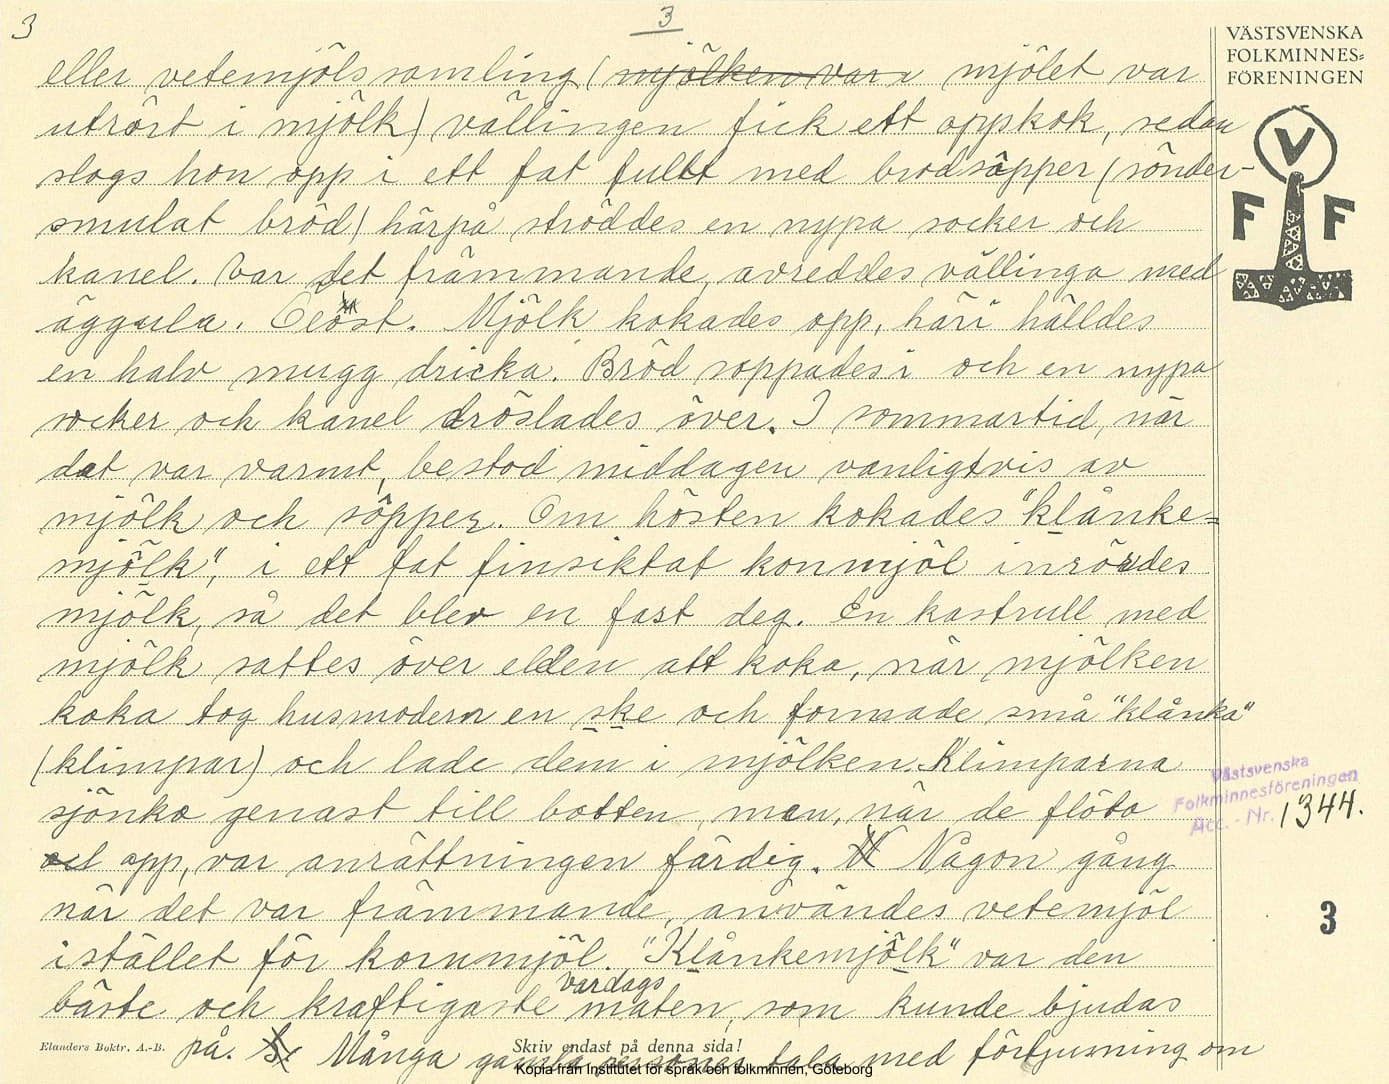 3
3
VÄSTSVENSKA
FOLKMINNES=
FÖRENINGEN
eller vetemjölssamling (mjölken var mjölet var
utrört i mjölk) vällingen fick ett oppskok, sedan
slogs hon opp i ett fat fullt med brodsôpper (sönder-
smulat bröd) härpå ströddes en nypa socker och
kanel. Var det främmande, avreddes vällinga med
äggula. Mjölk kokades opp, häri hälldes
en halv mugg dricka. Bröd soppades i och en nypa
socker och kanel dröslades över. I sommartid, när
dat var varmt, bestod middagen vanligtvis av
mjölk och sôpper. Om hösten kokades "klånke=
mjölk", i ett fat finsiktat konmjöl inrördes
mjölk, så det blev en fast deg. En kastrull med
mjölk sattes över elden att koka, när mjölken
koka tog husmodern en ske och formade små "klånka"
(klimpar) och lade dem i mjölken. Klimparna
sjönko genast till botten, men, när de flöto
opp, var anrättningen färdig. Någon gång
när det var främmande, användes vetemjöl
istället för kornmjöl. "Klånkemjölk" var den
bäste och kraftigaste vardagsmaten, som kunde bjudas
på. Många gamla personer tala med förtjusning om
V
F F
Västsvenska
Folkminnesföreningen
Acc. - Nr. 1344.
3
Elanders Boktr. A.-B.
Skriv endast på denna sida!
Kopia från Institutet för språk och folkminnen, Göteborg